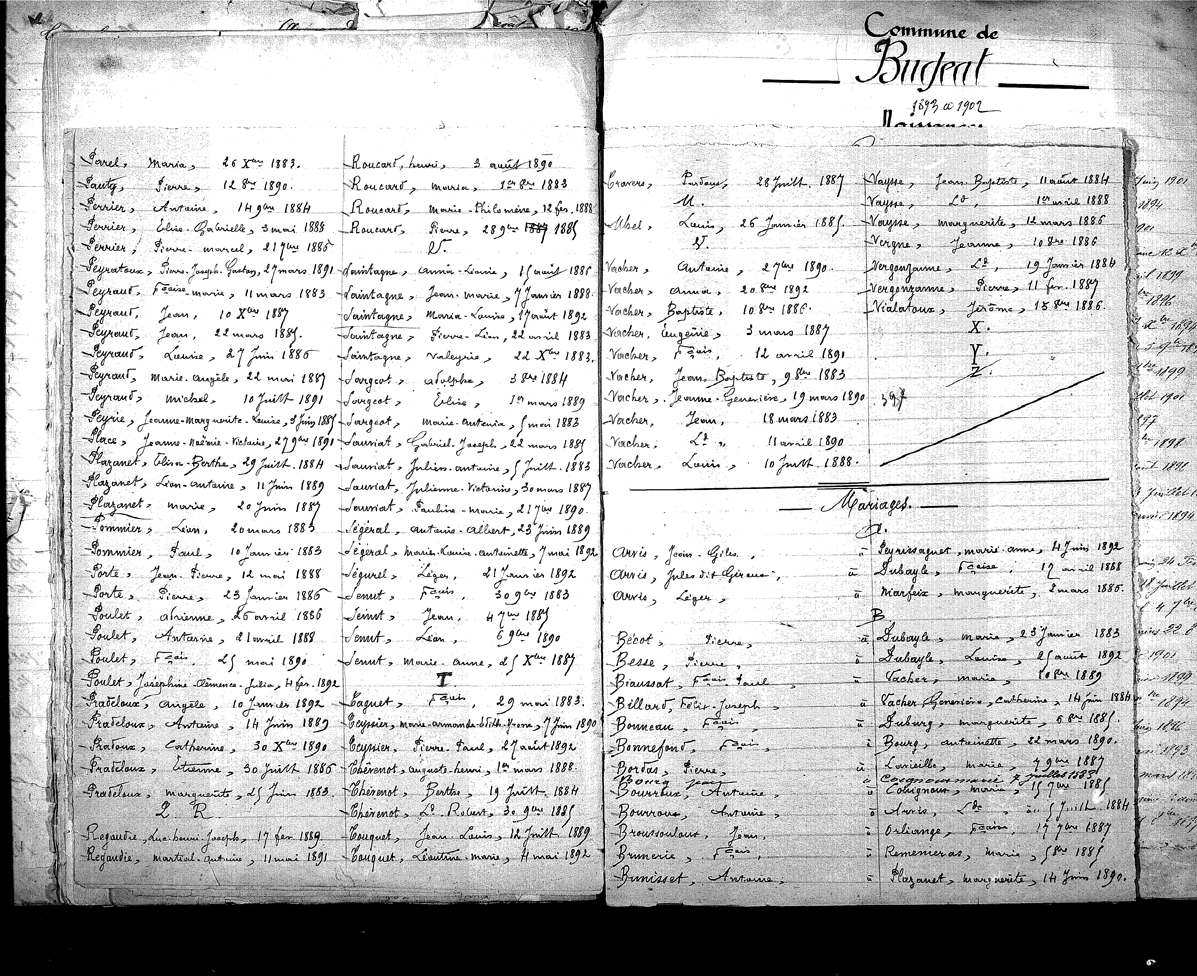 Commune de
Bugeat
1893 à 1902
Parel, Maria, 26 Xbre 1883.
Pauty, Pierre, 12 8bre 1890.
Perrier, Antoine, 14 9bre 1884
Perrier, Elise-Gabrielle, 3 mai 1888
Perrier, Pierre-marcel, 21 7bre 1886
Peyratoux, Pierre-Joseph-Gustay, 27 mars 1891
Peyraud, Fçoise-marie, 11 mars 1883
Peyraud, Jean, 10 Xbre 1887
Peyraud, Jean, 22 mars 1885.
Peyraud, Louise, 27 Juin 1886
Peyraud, Marie-Angèle, 22 mai 1887
Peyraud, michel, 10 Juillt 1891
Peyrie, Jeanne-Marguerite-Louise, 3 Juin 1885
Place, Jeanne-Noëmie-Victoire, 27 9bre 1890
Plazanet, Elisa-Berthe, 29 Juillt 1884
Plazanet, Léon-antoine, 11 Juin 1889
Plazanet, marie, 20 Juin 1887
Pommier, Léon, 20 mars 1883
Pommier, Paul, 10 Janvier 1883
Porte, Jean-Pierre, 12 mai 1888
Porte, Pierre, 23 Janvier 1886
Poulet, adrienne, 26 avril 1886
Poulet, Antoine, 21 avril 1888
Poulet, Fçois, 25 mai 1890
Poulet, Joséphine-Clémence-Julia, 4 fer. 1892
Pradeloux, angèle, 10 Janvier 1892
Pradeloux, Antoine, 14 Juin 1889
Pradoux, Catherine, 30 Xbre 1890
Pradeloux, Etienne, 30 Juillt 1886
Pradeloux, marguerite, 25 Juin 1883
Q R
Regaudie, Luc-henri-Joseph, 17 fer 1889.
Regaudie, martial-antoine, 11 mai 1891
Roucard, henri, 3 août 1890
Roucard, maria, 1er 8bre 1883
Roucard, marie-Philomène, 12 fer. 1888
Roucard, Pierre, 28 9bre 1887 1885
S.
Saintagne, Annie-Louise, 15 août 1886
Saintagne, Jean-marie, 7 Janvier 1888.
Saintagne, Maria-Louise, 17 août 1892
Saintagne, Pierre-Léon, 22 avril 1883
Saintagne, Valeyrie, 22 Xbre 1883.
Sargeot, adolphe, 3 8bre 1884
Sargeot, Elise, 1er mars 1889
Sargeot, Marie-Antonia, 5 mai 1883
Sauviat, Gabriel-Joseph, 22 mars 1885
Sauviat, Julien-antoine, 5 Juillt. 1883
Sauviat, Julienne-Victorine, 30 mars 1887
Sauviat, Pauline-marie, 21 7bre 1890.
Ségéral, Antoine-Albert, 23 Juin 1889
Ségéral, Marie-Louise-antoinette, 7 mai 1892
Ségurel, Léger, 21 Janvier 1892
Senut, Fçois, 30 9bre 1883
Senut, Jean, 4 7bre 1885
Senut, Léon, 6 9bre 1890
Senut, Marie-anne, 25 Xbre 1887
T
Taguet, Fçois, 29 mai 1883.
Teyssier, marie-armande-Edith-Yvonne, 7 Juin 1890
Teyssier, Pierre-Paul, 27 août 1892
Thérenot, auguste-henri, 1er mars 1888.
Thérenot, Berthe, 19 Juillt 1884
Thérenot, Ls Robert, 30 9bre 1885
Touquet, Jean-Louis, 12 Juillt 1889
Touquet, Léontine-marie, 4 mai 1892
Travers, 28 Juillt. 1887
U.
Uhel, Louis, 26 Janvier 1885.
V.
Vacher, Antoine, 27 bre 1890.
Vacher, Anna, 20 8bre 1892
Vacher, Baptiste, 10 8bre 1886.
Vacher, Eugénie, 3 mars 1887
Vacher, Fçois, 12 avril 1891
Vacher, Jean-Baptiste, 9 8bre 1883
Vacher, Jeanne-Geneviève, 19 mars 1890
Vacher, Jean, 18 mars 1883
Vacher, Ld, 11 avril 1890
Vacher, Louis, 10 Juillt 1888.
Vaysse, Jean-Baptiste, 11 août 1884
Vaysse, Ld, 1er avril 1888
Vaysse, marguerite, 12 mars 1886
Vergne, Jeanne, 10 8bre 1886
Vergonzanne, Ld, 19 Janvier 1884
Vergonzanne, Pierre, 11 fer. 1887
Vialatoux, Jérôme, 15 8bre 1886.
X.
Y.
Z.
397
Mariages.
A.
Arvis, Jean-Giles, à Peyrissaguet, marie-anne, 4 Juin 1892
Arvis, Jules dit Giraud, à Dubayle, Fçoise, 17 avril 1888
Arvis, Léger, à Marfeix, marguerite, 2 mars 1886.
B
Bécot, Pierre, à Dubayle, marie, 23 Janvier 1883
Besse, Pierre, à Dubayle, Louise, 25 août 1892
Biaussat, Fçois Paul, à Vacher, marie, 10 8bre 1889
Billard, Félix-Joseph, à Vacher Geneviève, Catherine, 14 Juin 1884
Bonneau, Fçois, à Duburg, marguerite, 6 8bre 1885.
Bonnefond, Fçois, à Bourg, antoinette, 22 mars 1890.
Bordas, Pierre, à Lavieille, marie, 7 9bre 1887
Bourg Jean à Coignoux marie 7 juillet 1883
Bourroux, Antoine, à Coignoux, marie, 15 7bre 1885
Bourroux, Antoine, à Arvis, Lse, 5 Juillt. 1884
Broussouloux, Jean, à Orliange, Fçoise, 17 7bre 1887
Brunerie, Fçois, à Remenieras, marie, 5 8bre 1885
Bunisset, Antoine, à Plazanet, marguerite, 14 Juin 1890.